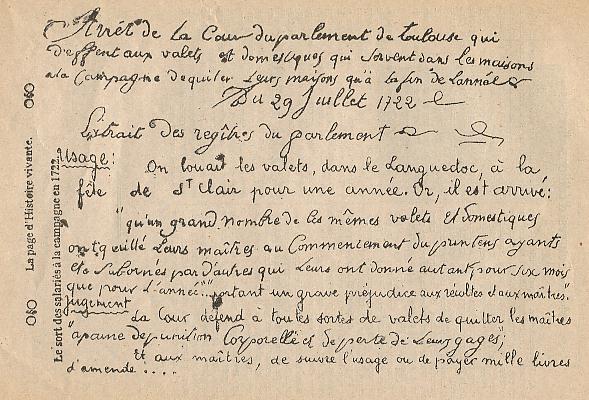 Arrêt de la Cour du parlement de toulouse qui
deffent aux valets et domestiques qui servent dans les maisons
a la Campagne de quiter Leurs maisons qu'à la fin de lannée
Du 29 Juillet 1722
Extrait des regîtres du parlement
Usage: On louait les valets, dans le Languedoc, à la
fête de St Clair pour une année. Or, il est arrivé:
"qu'un grand nombre de les mêmes valets et domestiques
ont quillé Leurs maîtres au Commencement du printens ayants
été Subornés par d'autres qui Leurs ont donné autant pour six mois
que pour l'année"... "portant un grave préjudice aux récoltes et aux maîtres."
Jugement La Cour défend à toutes sortes de valets de quitter les maîtres
"apaine de punition Corporelle et de perte de Leurs gages";
Et aux maîtres, de suivre l'usage ou de payer mille livres
d'amende ....
La page d'Histoire vivante.
Le sort des salariés à la campagne en 1722.